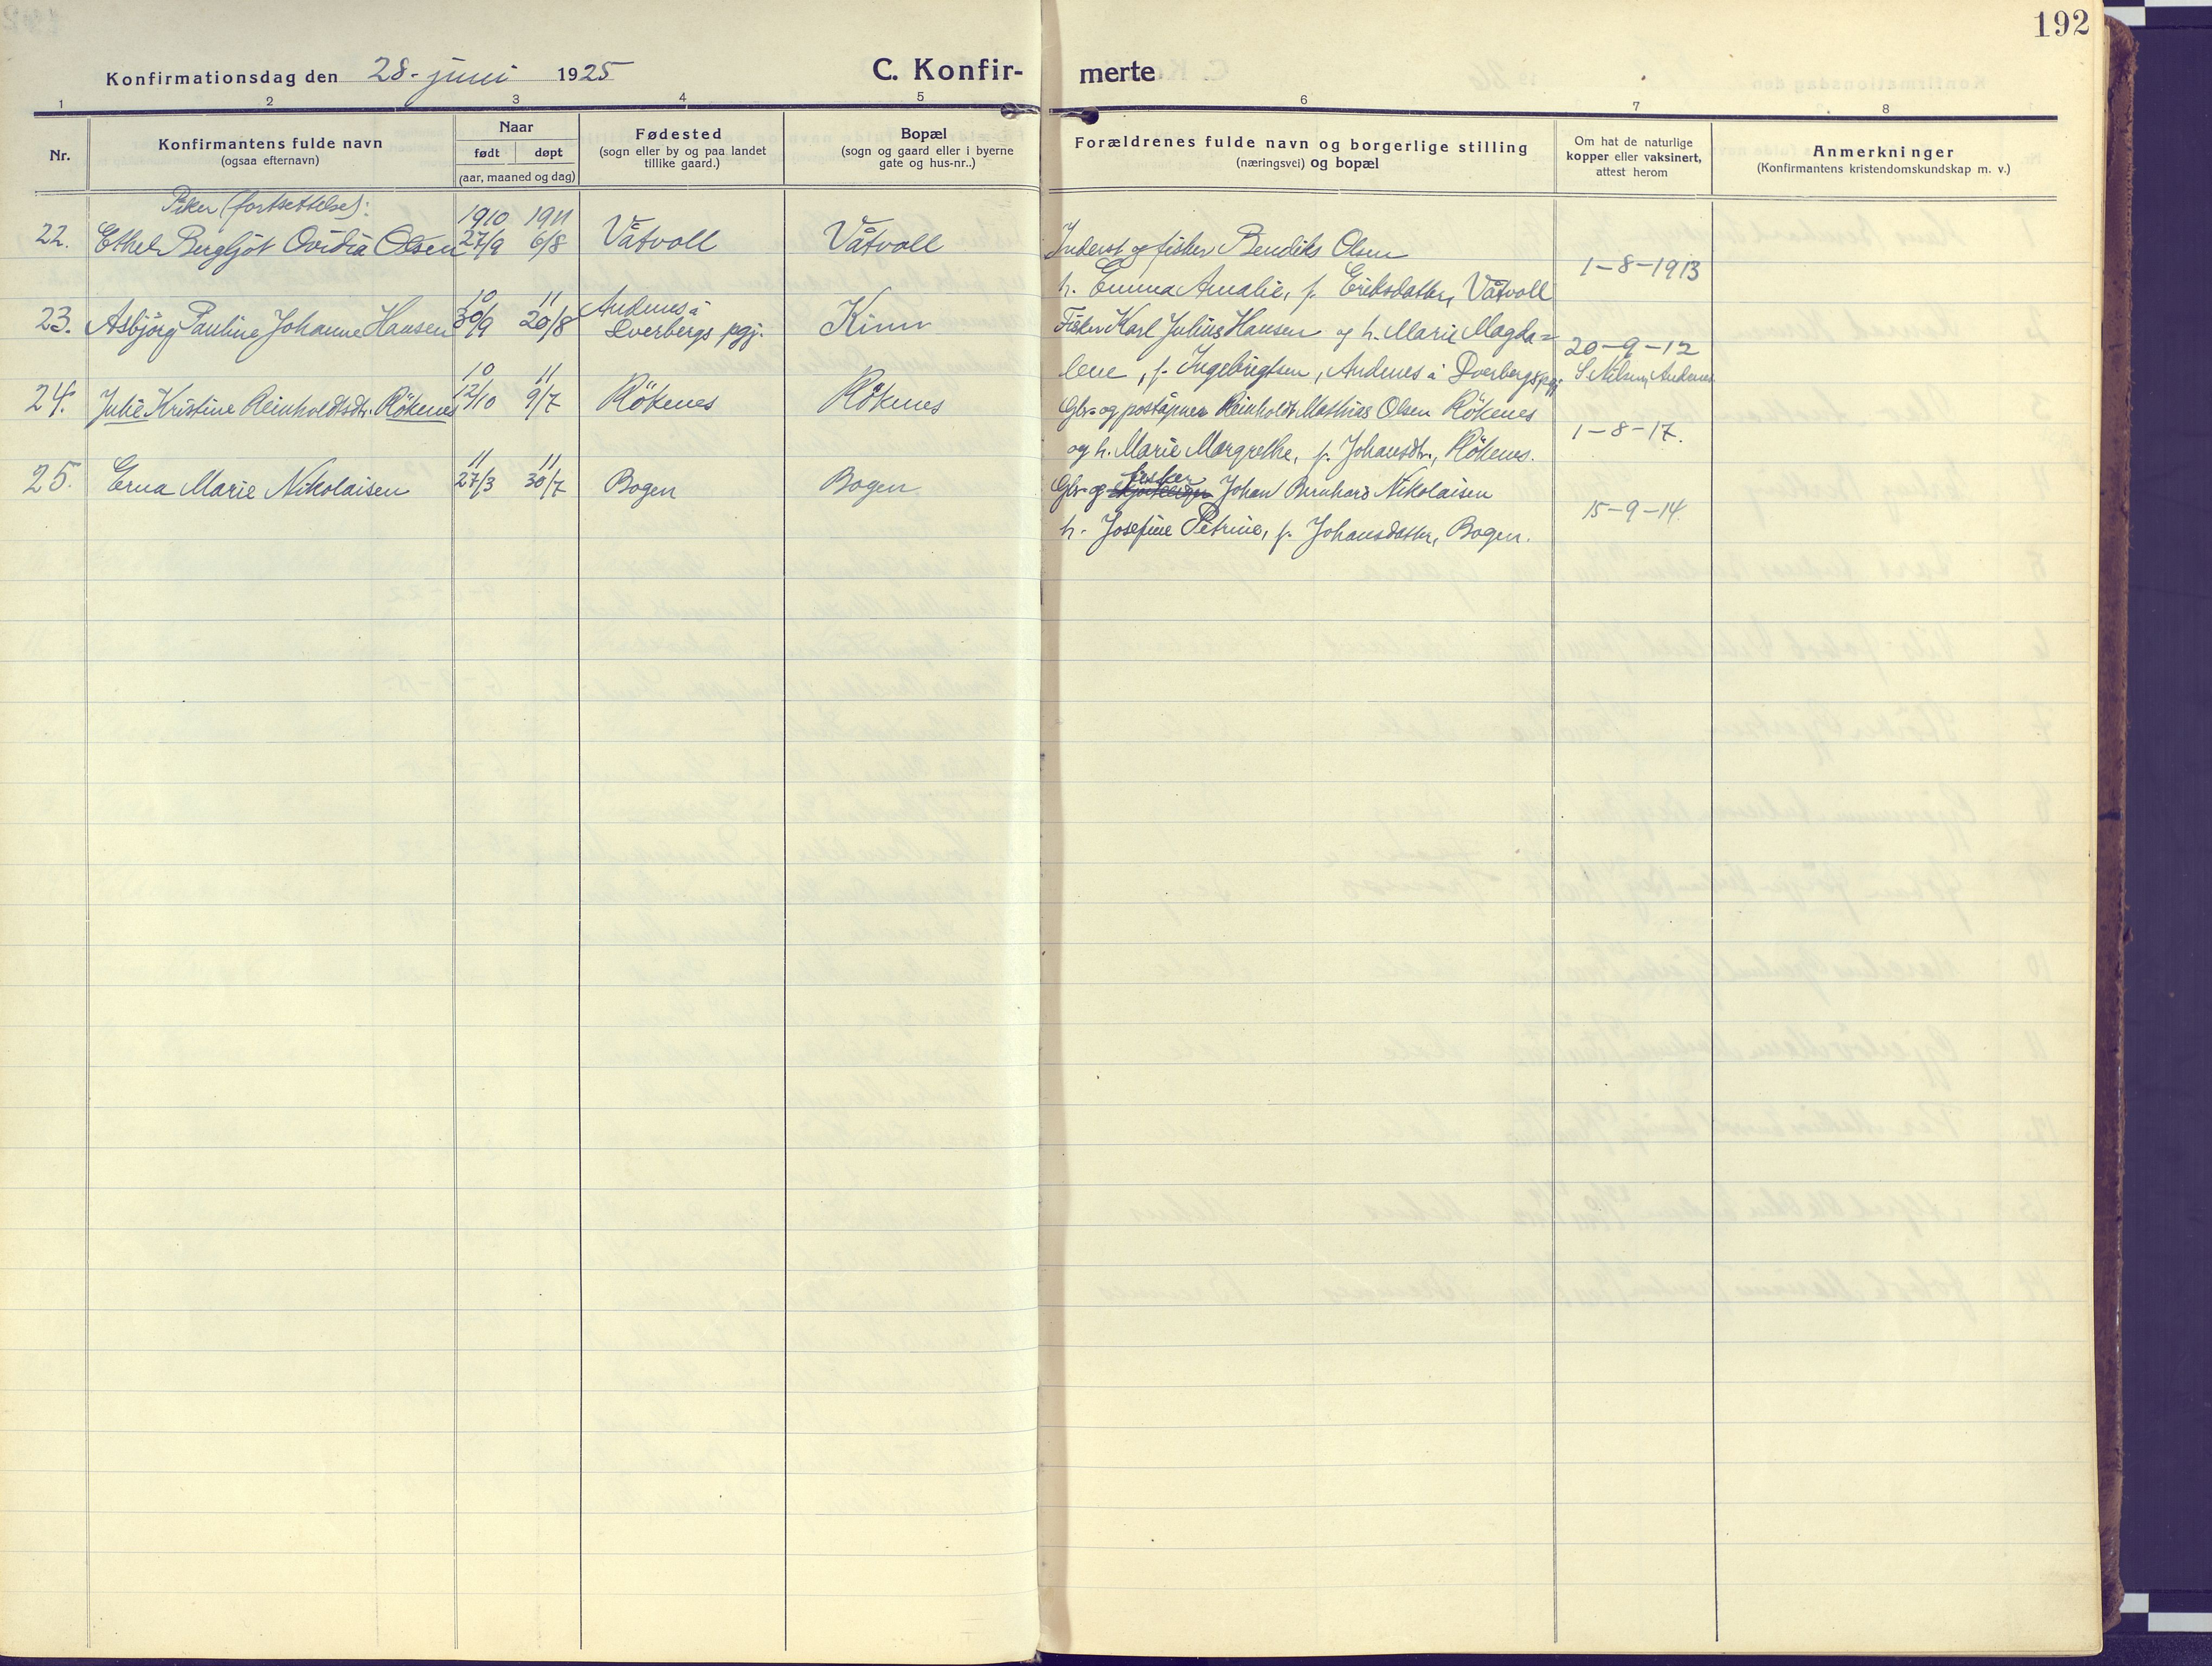 192
Konfirmationsdag den 28. juni 1925
C. Konfir-
merte
1 2 3 4 5 6 7 8
Nr.
Konfirmantens fulde navn
(ogsaa efternavn)
Naar
født døpt
(aar, maaned og dag)
Fødested
(sogn eller by og paa landet
tillike gaard.)
Bopæl
(sogn og gaard eller i byerne
gate og hus-nr..)
Forældrenes fulde navn og borgerlige stilling
(næringsvei) og bopæl
Om hat de naturlige
kopper eller vaksinert,
attest herom
Anmerkninger
(Konfirmantens kristendomskundskap m. v.)
Piker (fortsettelse):
1910 1911
22. Ethel Bergljót Ovidia Olsen 27/9 6/8 Våtvoll Våtvoll Inderst og fisker Bendiks Olsen
h. Emma Amalie, f. Eriksdatter, Våtvoll 1-8-1913
10 11
23. Asbjörg Pauline Johanne Hansen 30/9 20/8 Andenes i Dverbergs pgj. Kinn Fisker Karl Julius Hansen og h. Marie Magda=
lene, f. Ingebrigtsen, Andenes i Dverbergs pgj. 20-9-12
S. Nilsen, Andenes
10 11
24. Julie Kristine Reinholdtsdtr. Rökenes 12/10 9/7 Rökenes Rökenes Gbr. og poståpner Reinholdt Mathias Olsen Rökenes
og h. Marie Margrethe, f. Johansdtr., Rökenes. 1-8-17.
11 11
25. Erna Marie Nikolaisen 27/3 30/7 Bogen Bogen Gbr. og fisker Johan Bernhard Nikolaisen
h. Josefine Petrine, f. Johansdatter, Bogen. 15-9-14.